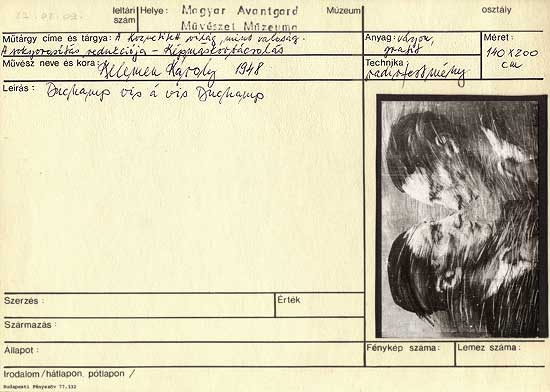 leltári szám
Helye: Magyar Avantgard Művészet Múzeuma Múzeum
osztály
Műtárgy címe és tárgya: A közvetített világ, mint valóság.
A sokszorosítás redukciója - Képmegsemmisítés
Anyag: vászon, grafit
Méret: 140 x 200 cm
Művész neve és kora: Kelemen Károly 1948
Technika: radírfestmény
Leírás: Duchamp vis á vis Duchamp
Szerzés:
Érték
Származás:
Állapot:
Fénykép száma:
Lemez száma:
Irodalom/hátlapon, pótlapon/
Budapesti Fényszöv 77.332